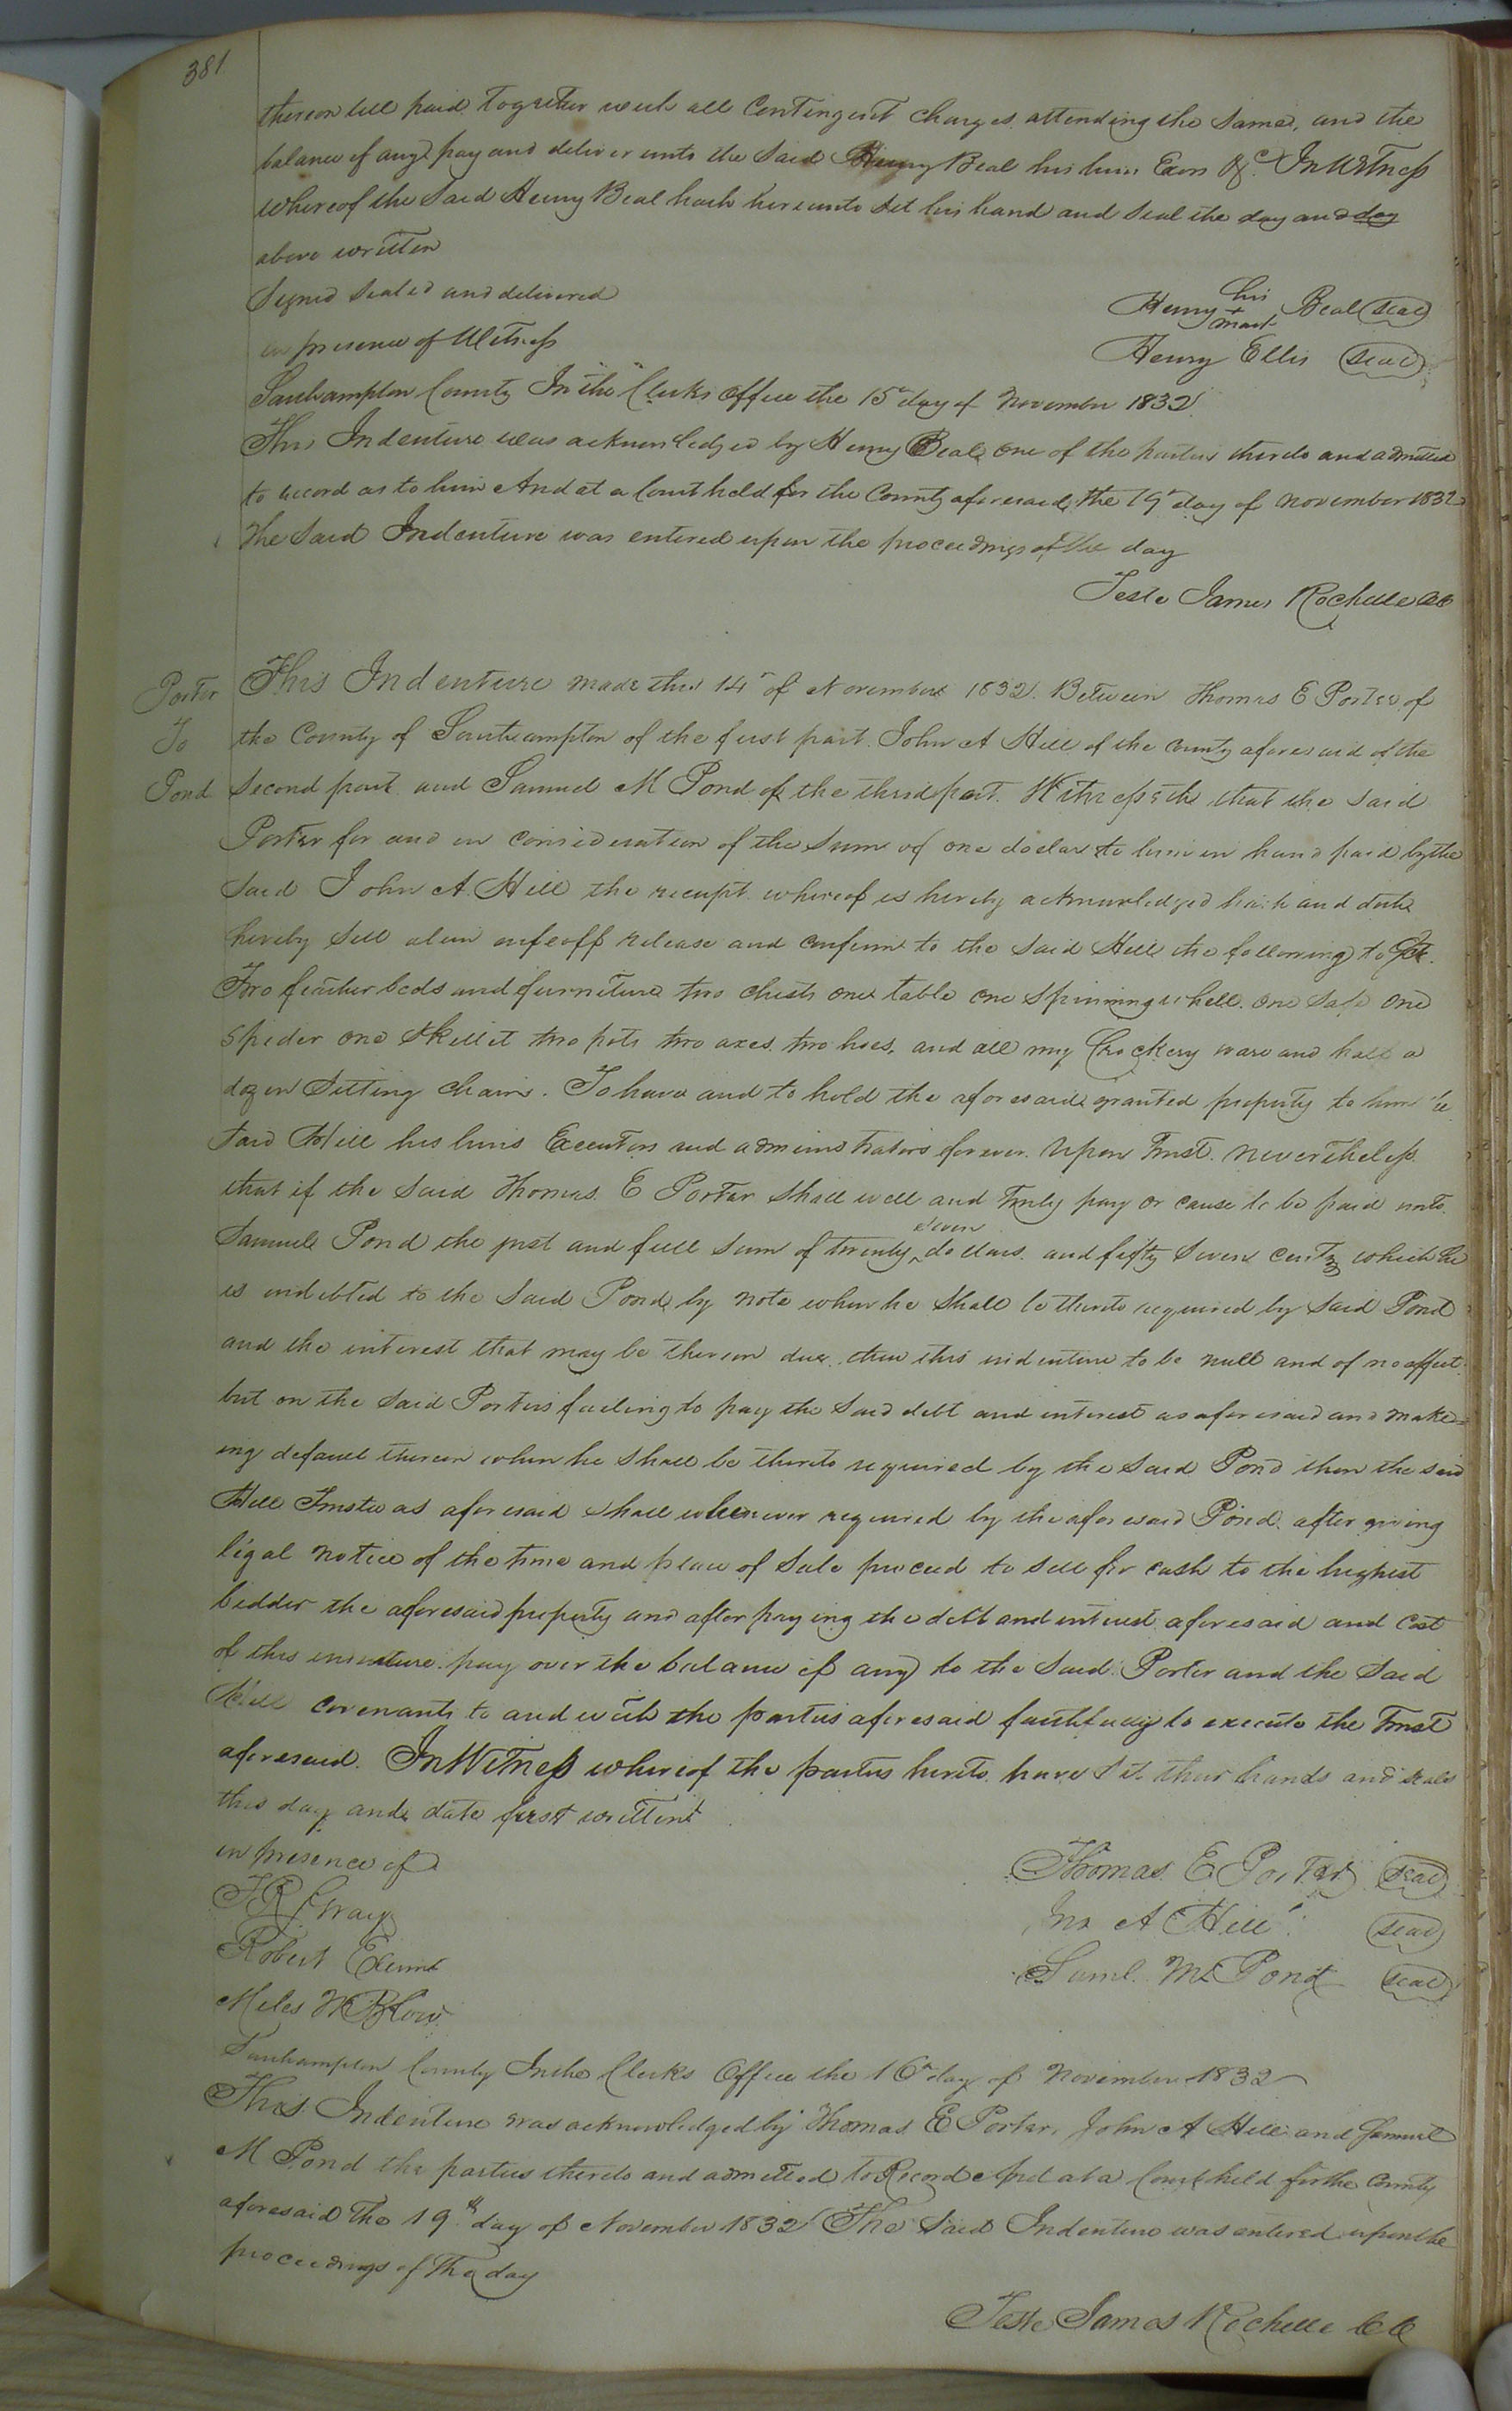 381
thereon till paid together with all Contingent charges attending the Same, and the
balance if any pay and deliver unto the Said Henry Beal his heirs Exors &c. In Witness
whereof the Said Henry Beal hath hereunto Set his hand and Seal the day and day
above written
Signed Sealed and delivered
in presence of Witness
Henry his + mark Beal seal
Henry Ellis seal
Southampton County In the Clerks office the 15th day of November 1832
This Indenture was acknowledged by Henry Beal one of the parties thereto and admitted
to record as to him And at a Court held for the County aforesaid the 19th day of November 1832
The Said Indenture was entered upon the proceedings of the day
Teste James Rochelle CC
Porter
To
Pond
This Indenture made this 14th of November 1832. Between Thomas E Porter of
the County of Southampton of the first part. John A Hill of the county aforesaid of the
Second part and Samuel M Pond of the third part. Witnesseth that the Said
Porter for and in consideration of the Sum of one dollar to him in hand paid by the
Said John A. Hill the receipt whereof is hereby acknowledged hath and doth
hereby Sell alein enfeoff release and confirm to the Said Hill the following to wit.
Two feather beds and furniture two chests one table one Spinning whell. one Safe one
Spider one Skillit two pots two axes. two hoes, and all my Crockery ware and half a
dozen Sitting chairs. To have and to hold the aforesaid granted property to him the
Said Hill his heirs Executors and administrators forever. Upon Trust. nevertheless.
that if the Said Thomas. E Porter Shall well and Truly pay or cause to be paid unto.
Samuel Pond the just and full Sum of twenty seven dollars. and fifty Seven cents which he
is indebted to the Said Pond by note when he Shall be thereto required by Said Pond
and the interest that may be thereon due. then this indenture to be null and of no affect.
but on the Said Porters failing to pay the Said debt and interest as aforesaid and make=
ing default thereon when he Shall be thereto required by the Said Pond then the said
Hill Trustee as aforesaid Shall whenever required by the aforesaid Pond. after giving
legal notice of the time and place of Sale proceed to Sell for cash to the highest
bidder the aforesaid property and after paying the debt and interest aforesaid and cost
of this indenture. pay over the balance if any to the Said. Porter and the Said
Hill covenants to and with the parties aforesaid faithfully to execute the Trust
aforesaid. In Witness whereof the parties hereto. have Set their hands and seals
this day and date first written
in presence of
T R Gray
Robert
Miles W Blow
Thomas. E Porter seal
Jno A Hill seal
Saml. M Pond seal
Southampton County In the Clerks Office the 16th day of November 1832
This. Indenture was acknowledged by Thomas E Porter, John A Hill and Samuel
M Pond the parties thereto and admitted to Record And at a Court held for the County
aforesaid The 19th day of November 1832 The Said Indenture was entered upon the
proceedings of The day
Teste James Rochelle CC